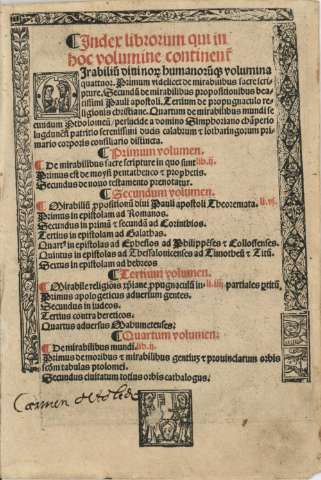 ¶Index librorum qui in
hoc volumine continent̃
Mirabiliũ divinorꝫ humanorũqꝫ volumina
quattuor. Primum videlicet de mirabilibus sacre scri-
pture. Secundũ de mirabilibus propositionibus bea-
tissimi Pauli apostoli. Tertium de propugnaculo re-
ligionis christiane. Quartum de mirabilibus mundi se
cundum Ptholomeũ, perlucide a domino Simphoriano chãperio
lugdunẽsi patrio serenissimi ducis calabrum et lotharingorum primo
rario corporis consiliario distincta.
¶Primum volumen.
¶De mirabilibus sacre scripture in quo sunt lib. ij.
Primus est de moysi pentatheuco et prophetis.
Secundus de novo testamento prenotatur.
¶Secundum volumen.
¶Mirabiliũ ppositionũ divi Pauli apostoli Theoremata. li. vj.
Primus in epistolam ad Romanos.
Secundus in primã et secundã ad Corinthios.
Tertius in epistolam ad Galathas.
Quartꝰ in epistolas ad Ephesios ad Philippẽses et Collossenses.
Quintus in epistolas ad Thessalonicenses ad Timotheũ et Titũ.
Sextus in epistolam ad hebreos
¶Tertium volumen.
¶Mirabile religionis xp̃iane ppugnaculũ in li. iiij. partiales ptitũ.
Primus apologeticus adversum gentes.
Secundus in iudeos.
Tertius contra hereticos.
Quartus adversus Mahumetenses.
¶Quartum volumen.
¶De mirabilibus mundi. lib. ij.
Primus de moribus et mirabilibus gentiũ et provinciarum orbis
scd̃m tabulas ptolomei.
Secundus civitatum totius orbis cathalogus.
Carmen